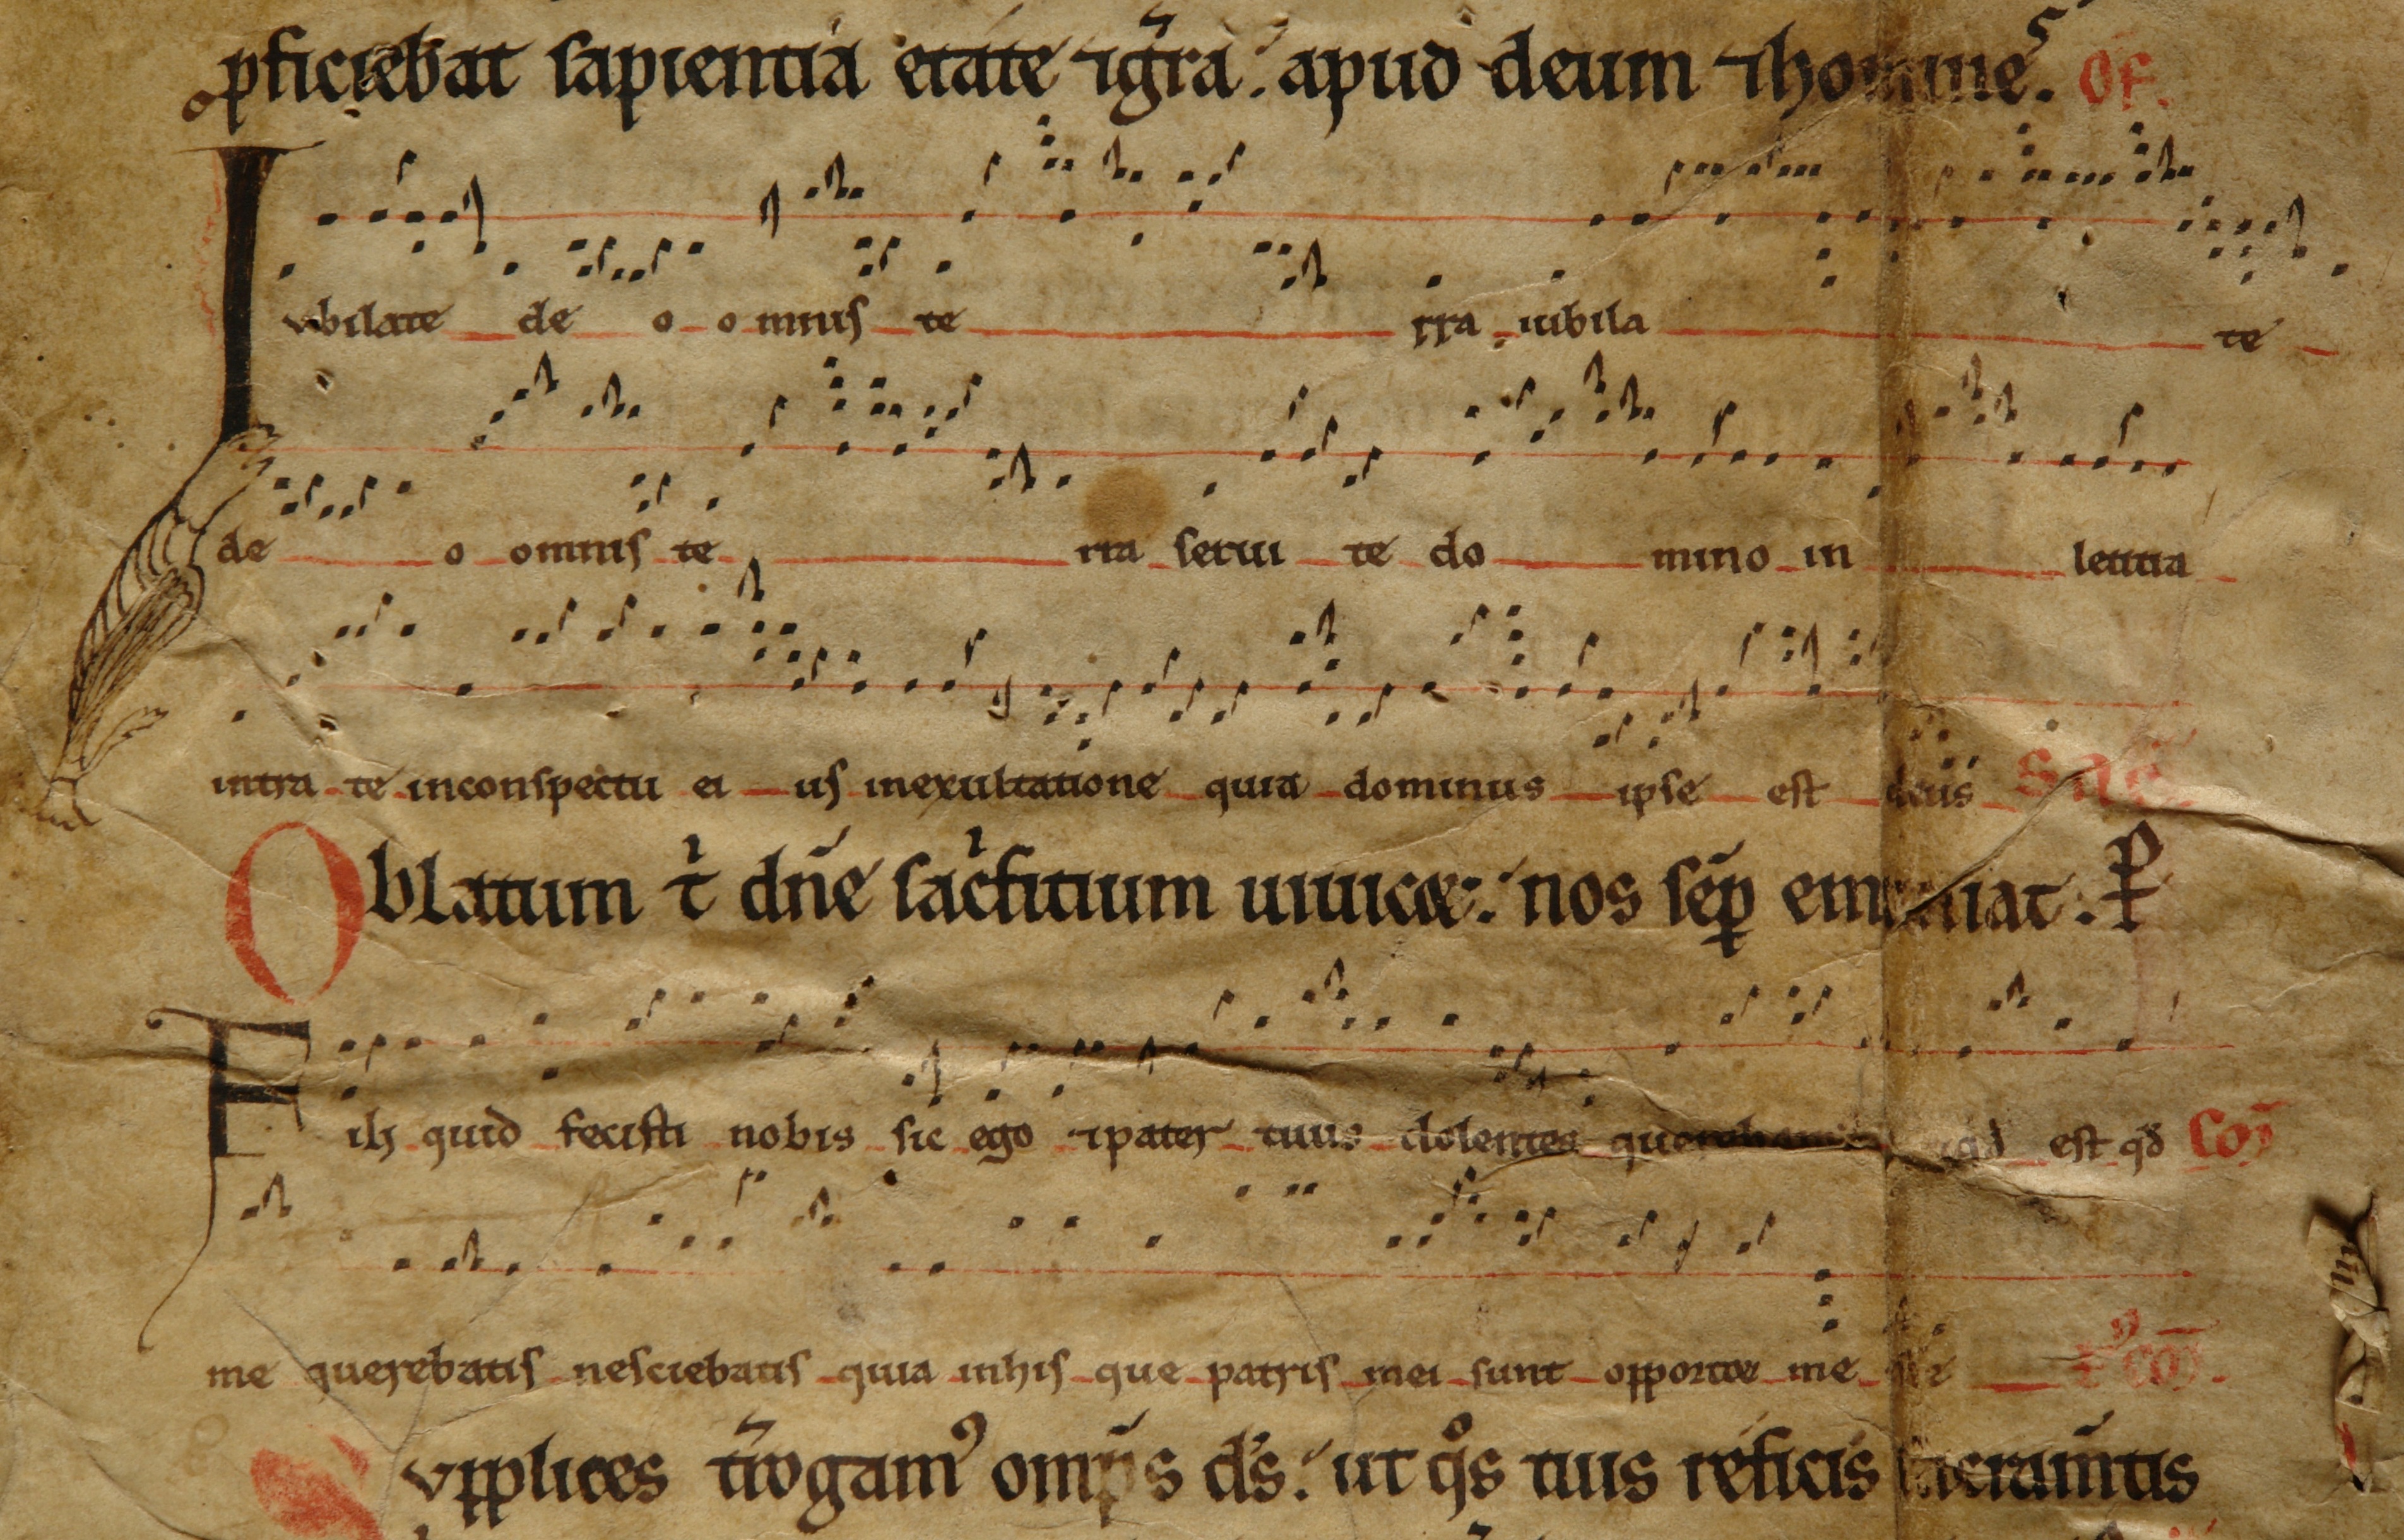 ꝓficiebat sapientia etate ⁊ gr̃a. apud deum ⁊ homineˢ. Of.
Iubilate de o omnis te rra iubila te
de o omnis te rra serui te do mino in letitia
intra te inconspectu ei us inexultatione quia dominus ipse est deus
Oblatum tⁱ dñe sacⁱfitium uiuicæ: nos sẽꝑ emuniat. ꝑ
Fili quid fecisti nobis sic ego ⁊ pater tuus dolentes est qđ Coɱ̄
me querebatis nesciebatis quia inhis que patris mei sunt opportet me
Supplices t̃ rogamꝰ omp̃s ds̃. ut qͦs tuis reficis sacram̃tis